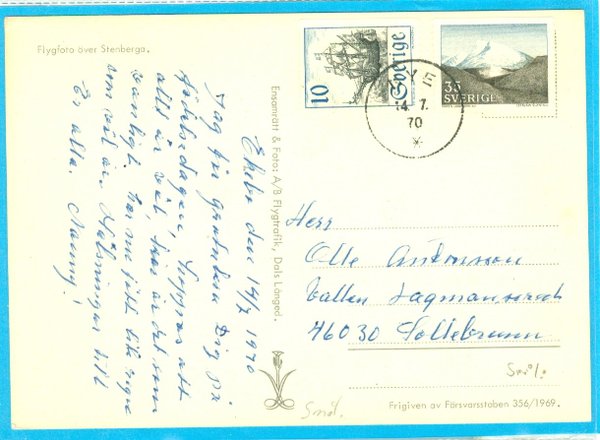 Flygfoto över Stenberga.
Ekeby den 14/7 1970
Jag får gratulera Dig på
födelsedagen, hoppas att
allt är väl, här är det som
vanligt, har nu fått lite regn
som väl är. Hälsningar till
Er alla. Nanny!
Ensamrätt & Foto: A/B Flygtrafik, Dals Långed.
10
Sverige
35
SVERIGE
4. 7.
70
Herr
Olle
Vallen
46030
Smål.
Smål.
Frigiven av Försvarsstaben 356/1969.